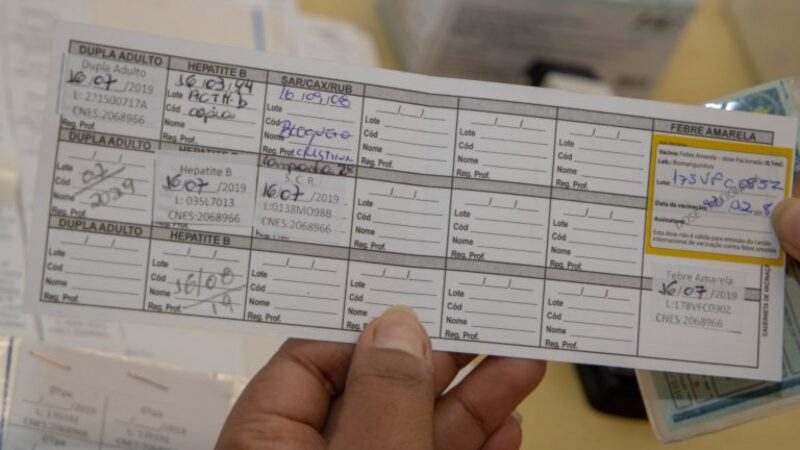 DUPLA ADULTO
Dupla Adulto
16/07/2019
L: 221500717A
CNES:2068966
Reg. Prof.
HEPATITE B
16/03/94
Lote
Cód
cópia
Nome
Reg. Prof.
SAR/CAX/RUB
16/09/08
Lote
Cód
BLOQUEIO
Reg. Prof.
CRISTINA
Lote
Cód
Nome
Reg. Prof.
Lote
Cód
Nome
Reg. Prof.
Lote
Cód
Nome
Reg. Prof.
FEBRE AMARELA
Vacina: Febre Amarela - dose fracionada (0,1ml)
Lab.: Biomanguinhos
Lote: 175VFC085Z
Data da vacinação:
Assinatura:
Esta dose não é válida para emissão do cartão
internacional de vacinação contra febre amarela
DUPLA ADULTO
Lote 07
Cód
2029
Nome
Reg. Prof.
Hepatite B
16/07/2019
L: 035L7013
CNES:2068966
S.C.R.
16/07/2019
L:0138M098B
CNES:2068966
Lote
Cód
Nome
Reg. Prof.
Lote
Cód
Nome
Reg. Prof.
Lote
Cód
Nome
Reg. Prof.
DUPLA ADULTO
Lote
Cód
Nome
Reg. Prof.
HEPATITE B
Lote
16/08
Cód
19
Nome
Reg. Prof.
Lote
Cód
Nome
Reg. Prof.
Lote
Cód
Nome
Reg. Prof.
Lote
Cód
Nome
Reg. Prof.
Lote
Cód
Nome
Reg. Prof.
Febre Amarela
16/07/2019
L:178VFC090Z
CNES:2068966
CADERNETA DE VACINAÇÃO
DTpa
/2019
CNES:2068966
DTpa
/2019
CNES:2068966